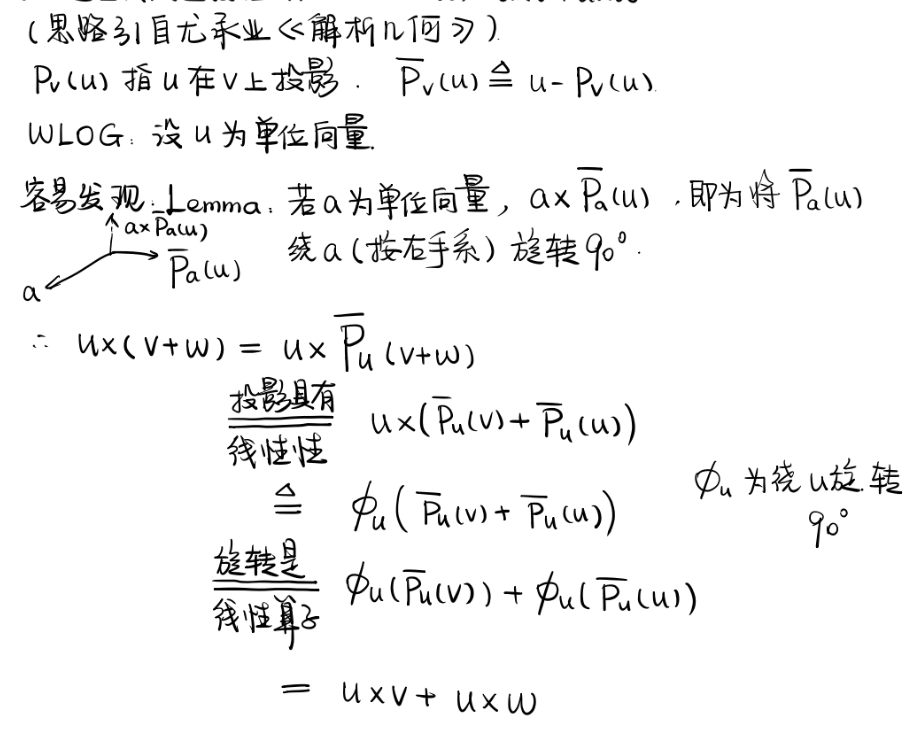 (思路引自尤承业《解析几何》)
Pᵥ(u) 指 u 在 v 上投影. P̅ᵥ(u) ≜ u - Pᵥ(u).
WLOG: 设 u 为单位向量.
容易发现: Lemma: 若 a 为单位向量, a × P̅ₐ(u), 即为将 P̅ₐ(u)
绕 a (按右手系) 旋转 90°.
a × P̅ₐ(u)
P̅ₐ(u)
a
∴ u×(v+w) = u × P̅ᵤ(v+w)
投影具有
线性性
u×(P̅ᵤ(v) + P̅ᵤ(u))
≜ ϕᵤ(P̅ᵤ(v) + P̅ᵤ(u))
ϕᵤ 为绕 u 旋转
90°
旋转是
线性算子
ϕᵤ(P̅ᵤ(v)) + ϕᵤ(P̅ᵤ(u))
= u×v + u×w